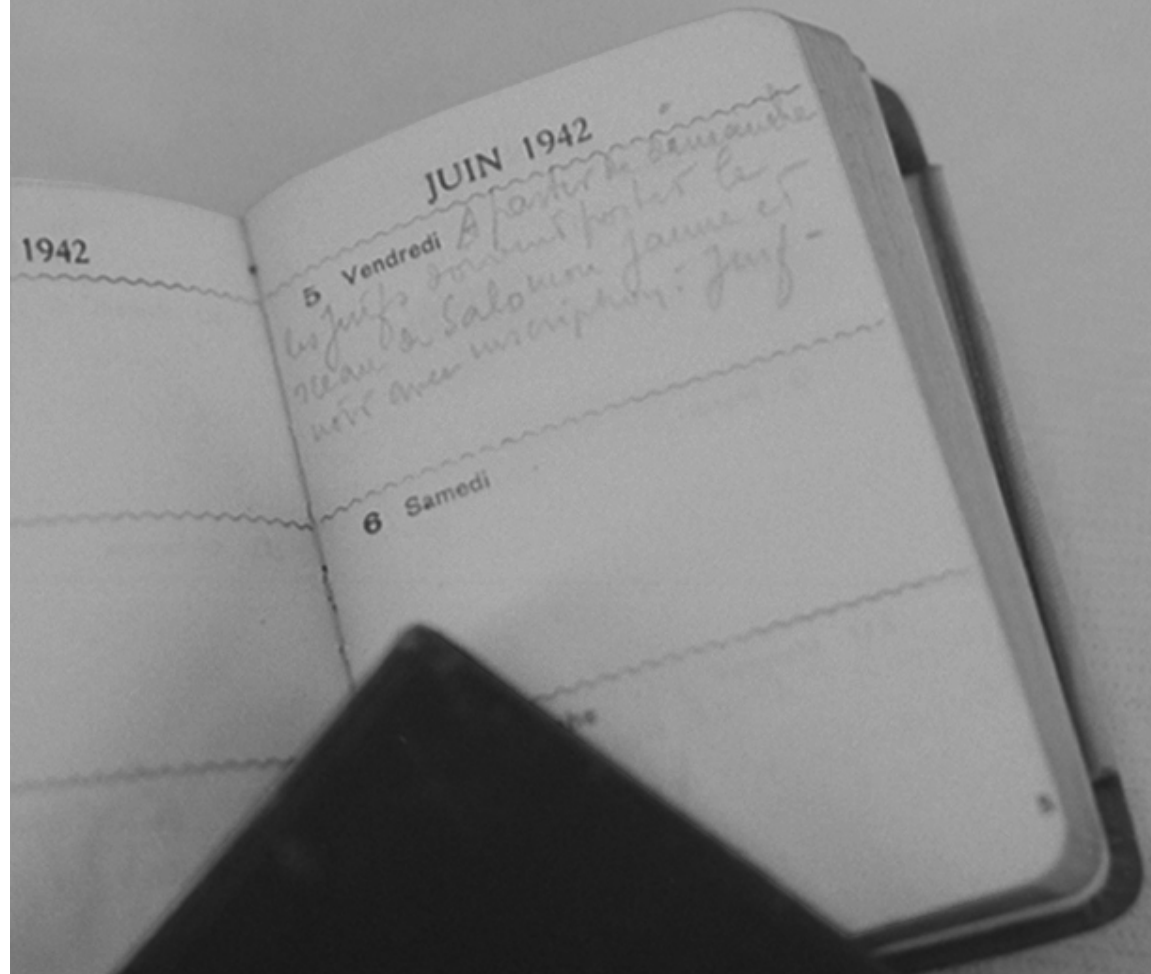 1942
JUIN 1942
5 Vendredi A partir de dimanche
les juifs doivent porter le
sceau de Salomon jaune et
noir avec inscription : Juif -
6 Samedi